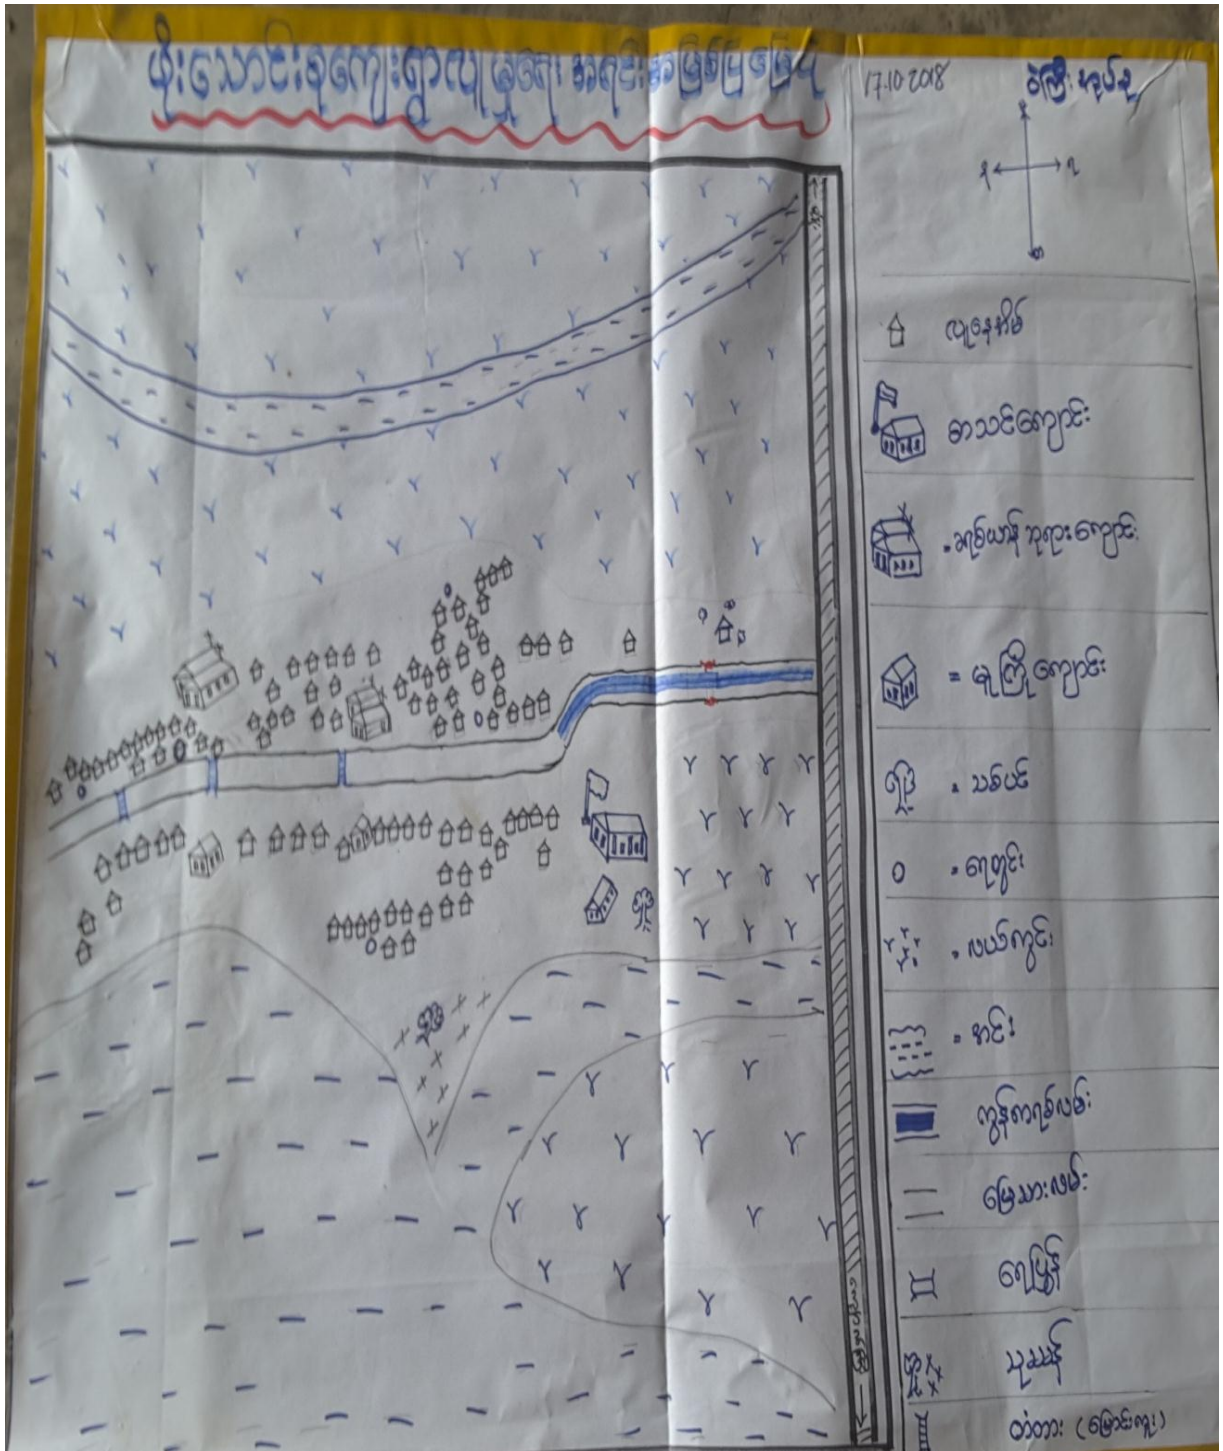 ဖိုးသောင်းစုကျေးရွာလူမှုရေး အရင်းအမြစ်ပြမြေပုံ
17.10.2018
လူနေအိမ်
စာသင်ကျောင်း
ခရစ်ယာန်ဘုရားကျောင်း
= မူကြိုကျောင်း
= သစ်ပင်
= ရေတွင်း
= လယ်ကွင်း
= အင်း
ကွန်ကရစ်လမ်း
မြေသားလမ်း
ရေပြွန်
သုသာန်
တံတား (မြောင်းကူး)